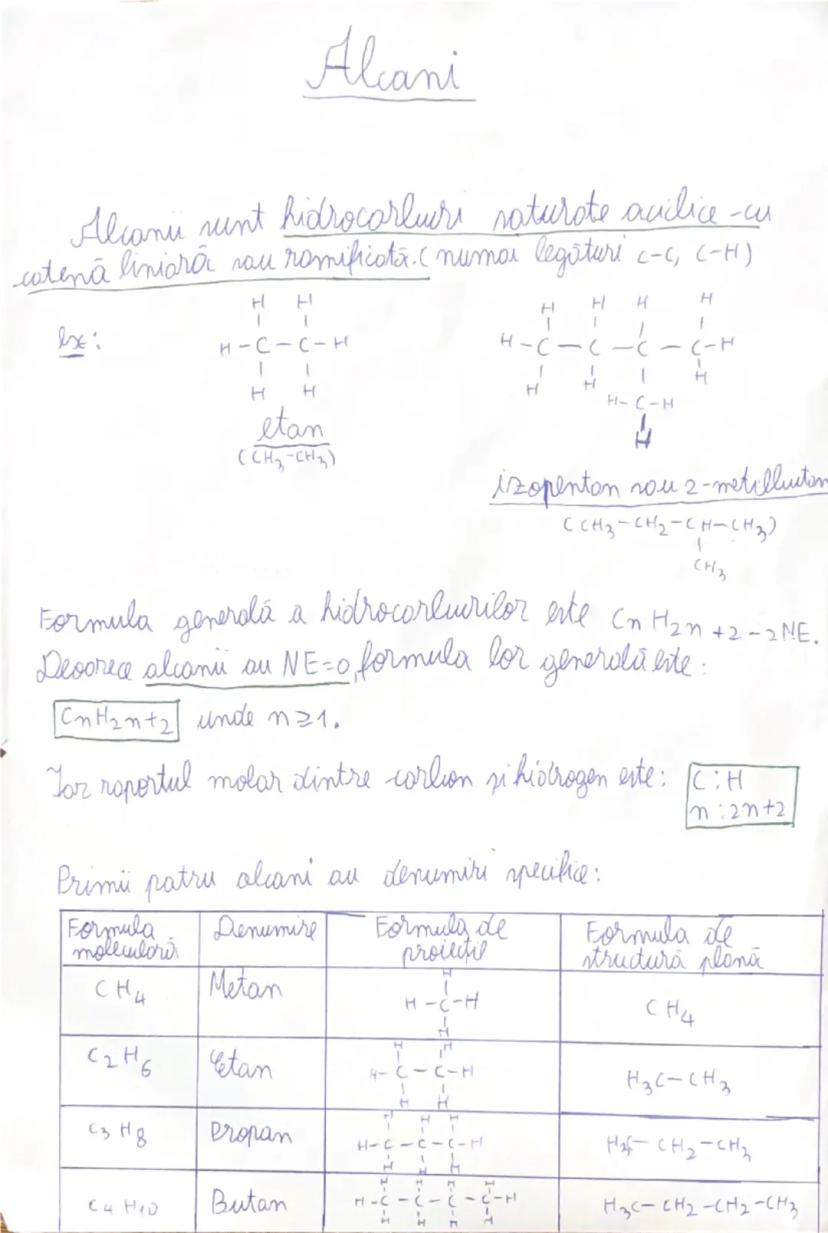 Alcani
Alcanii sunt hidrocarburi saturate aciclice-cu
catenă liniară sau ramificată. (numai legături C-C, C-H)
ex:
H H
H-C-C-H
H H
etan
(CH3-CH3)
H H H H
H-C-C-C-C-H
H H H
H-C-H
H
izopentan sau 2-metilbutan
(CH3-CH2-CH-CH3)
CH3
Formula generală a hidrocarburilor este CnH2n+2-2NE.
Deoarece alcanii au NE=0, formula lor generală este:
CnH2n+2 unde n≥1.
Iar raportul molar dintre carbon și hidrogen este: C:H
n:2n+2
Primii patru alcani au denumiri specifice:
Formula moleculară Denumire Formula de proiecție Formula de structură plană
H
CH4 Metan H-C-H CH4
H
H H
C2H6 Etan H-C-C-H H3C-CH3
H H
H H H
C3H8 Propan H-C-C-C-H H3C-CH2-CH3
H H H
H H H H
C4H10 Butan H-C-C-C-C-H H3C-CH2-CH2-CH3
H H H H